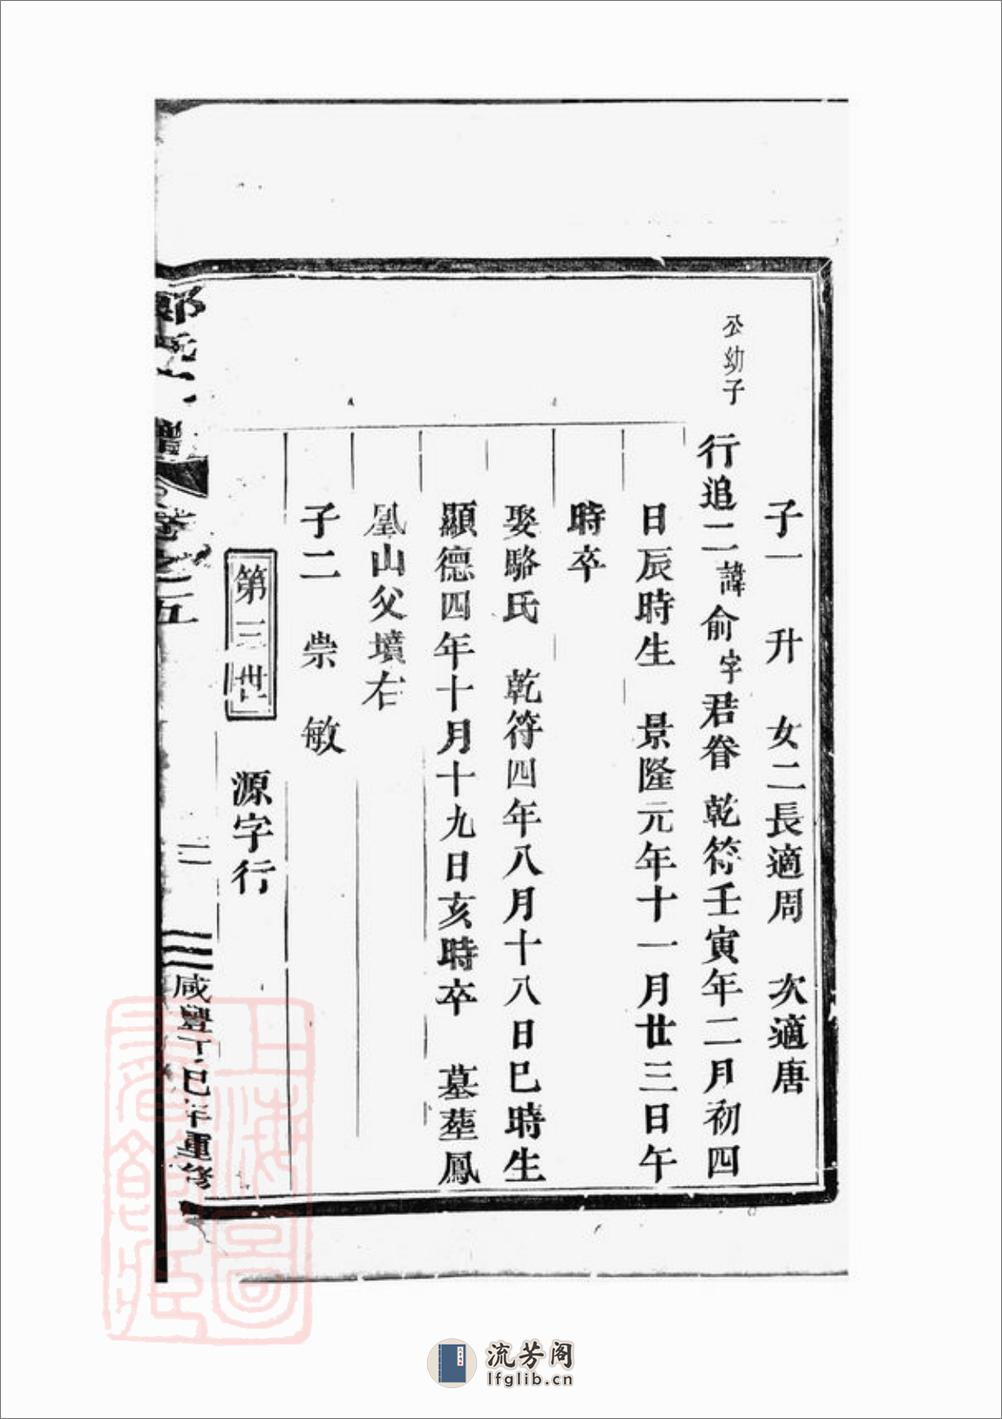 子一 升 女二長適周 次適唐
公幼子
行追二諱俞字君眷 乾符壬寅年二月初四
日辰時生 景隆元年十一月廿三日午
時卒
娶駱氏 乾符四年八月十八日巳時生
顯德四年十月十九日亥時卒 墓塟鳳
凰山父墳右
子二 崇 敏
第三世 源字行
卷之五
咸豐丁巳年重修
上海圖書館藏
流芳阁
lfglib.cn